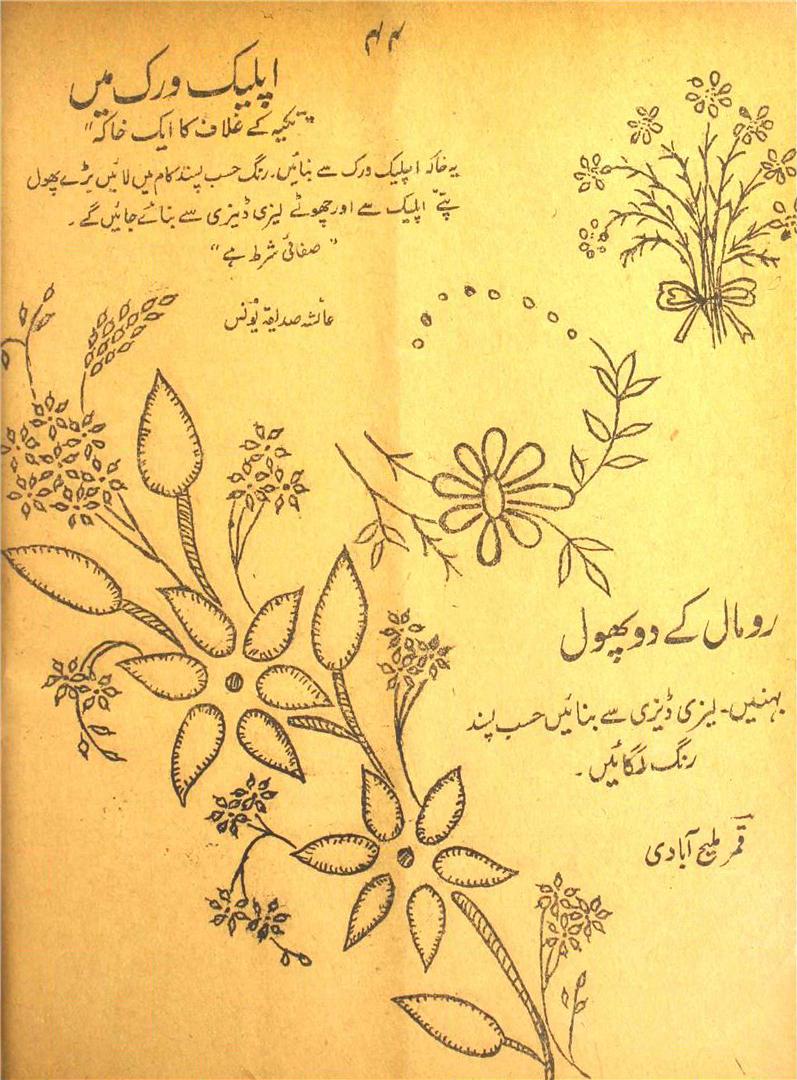 ۴۴
اپلیک ورک میں
"تکیہ کے غلاف کا ایک خاکہ"
یہ خاکہ اپلیک ورک سے بنائیں۔ رنگ حسب پسند کام میں لائیں بڑے پھول
پتے اپلیک سے اور چھوٹے لیزی ڈیزی سے بنائے جائیں گے۔
"صفائی شرط ہے"
عائشہ صدیقہ یونس
رومال کے دو پھول
بہنیں۔ لیزی ڈیزی سے بنائیں حسب پسند
رنگ لگائیں۔
قمر ملیح آبادی